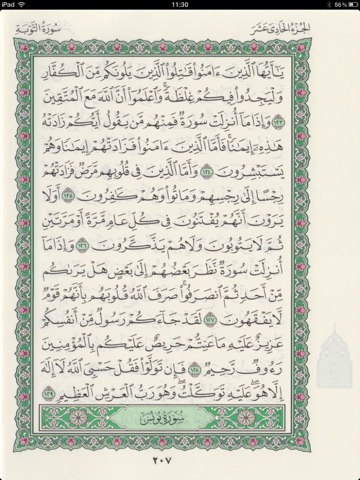 iPad 11:30 96%
الجزء الحادى عشر سورة التوبة
يَـٰٓأَيُّهَا ٱلَّذِينَ ءَامَنُوا۟ قَـٰتِلُوا۟ ٱلَّذِينَ يَلُونَكُم مِّنَ ٱلْكُفَّارِ
وَلْيَجِدُوا۟ فِيكُمْ غِلْظَةً ۚ وَٱعْلَمُوٓا۟ أَنَّ ٱللَّهَ مَعَ ٱلْمُتَّقِينَ
١٢٣ وَإِذَا مَآ أُنزِلَتْ سُورَةٌ فَمِنْهُم مَّن يَقُولُ أَيُّكُمْ زَادَتْهُ
هَـٰذِهِۦٓ إِيمَـٰنًا ۚ فَأَمَّا ٱلَّذِينَ ءَامَنُوا۟ فَزَادَتْهُمْ إِيمَـٰنًا وَهُمْ
يَسْتَبْشِرُونَ ١٢٤ وَأَمَّا ٱلَّذِينَ فِى قُلُوبِهِم مَّرَضٌ فَزَادَتْهُمْ
رِجْسًا إِلَىٰ رِجْسِهِمْ وَمَاتُوا۟ وَهُمْ كَـٰفِرُونَ ١٢٥ أَوَلَا
يَرَوْنَ أَنَّهُمْ يُفْتَنُونَ فِى كُلِّ عَامٍ مَّرَّةً أَوْ مَرَّتَيْنِ
ثُمَّ لَا يَتُوبُونَ وَلَا هُمْ يَذَّكَّرُونَ ١٢٦ وَإِذَا مَآ
أُنزِلَتْ سُورَةٌ نَّظَرَ بَعْضُهُمْ إِلَىٰ بَعْضٍ هَلْ يَرَىٰكُم
مِّنْ أَحَدٍ ثُمَّ ٱنصَرَفُوا۟ ۚ صَرَفَ ٱللَّهُ قُلُوبَهُم بِأَنَّهُمْ قَوْمٌ
لَّا يَفْقَهُونَ ١٢٧ لَقَدْ جَآءَكُمْ رَسُولٌ مِّنْ أَنفُسِكُمْ
عَزِيزٌ عَلَيْهِ مَا عَنِتُّمْ حَرِيصٌ عَلَيْكُم بِٱلْمُؤْمِنِينَ
رَءُوفٌ رَّحِيمٌ ١٢٨ فَإِن تَوَلَّوْا۟ فَقُلْ حَسْبِىَ ٱللَّهُ لَآ إِلَـٰهَ
إِلَّا هُوَ ۖ عَلَيْهِ تَوَكَّلْتُ ۖ وَهُوَ رَبُّ ٱلْعَرْشِ ٱلْعَظِيمِ ١٢٩
سُورَةُ يُونُسَ
٢٠٧